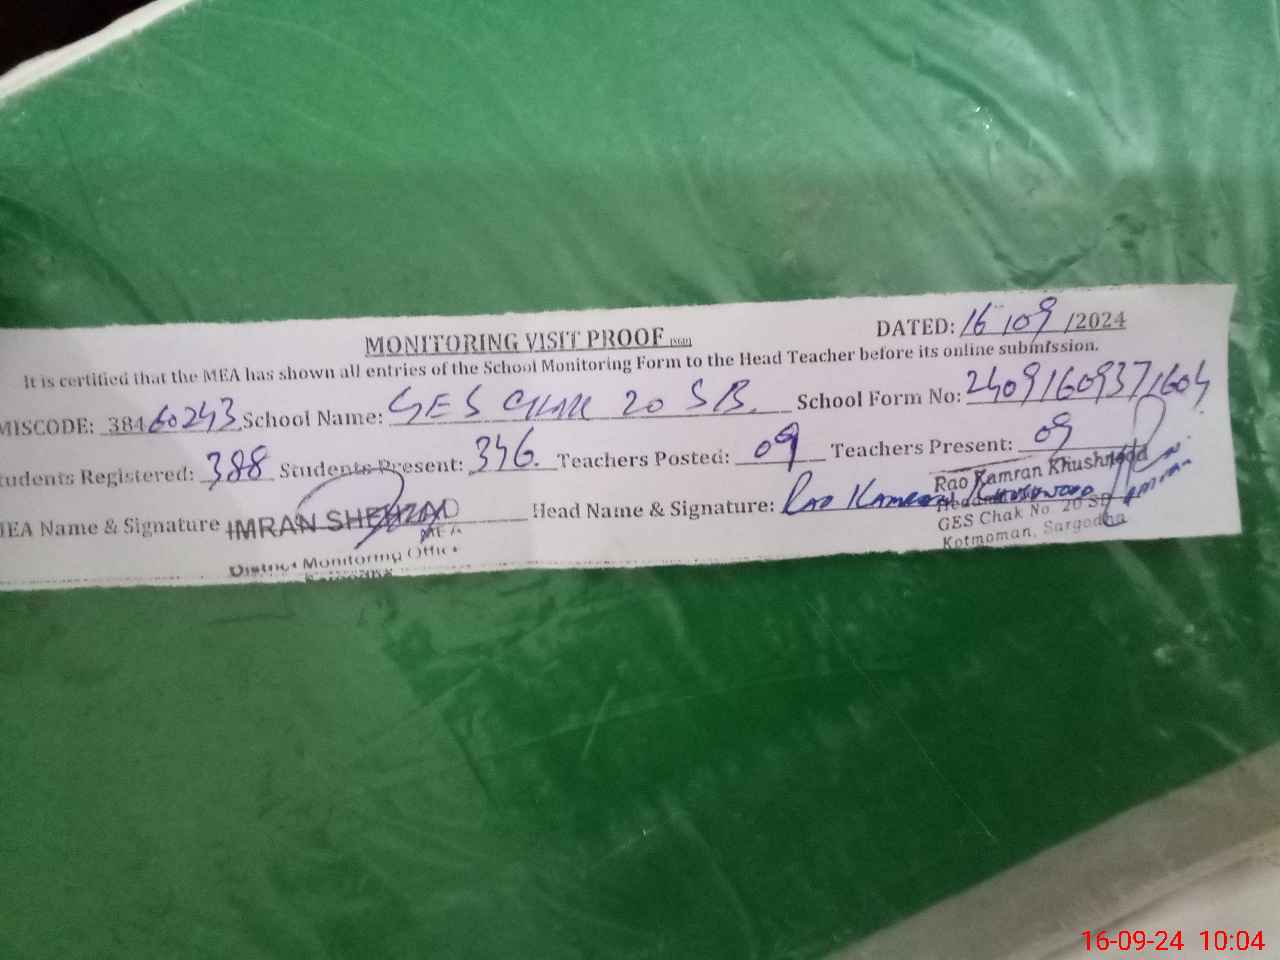 MONITORING VISIT PROOF DATED: 16/09/2024
It is certified that the MEA has shown all entries of the School Monitoring Form to the Head Teacher before its online submission.
MISCODE: 38460243 School Name: GES Chak 20 SB. School Form No:
tudents Registered: 388 Students Present: 346. Teachers Posted: 09 Teachers Present: 09
EA Name & Signature IMRAN SHEHZAD Head Name & Signature: Rao Kamran Khushnood
MEA
District Monitoring Office
Rao Kamran Khushnood
Headmaster
GES Chak No. 20 SB
Kotmoman, Sargodha
16-09-24 10:04